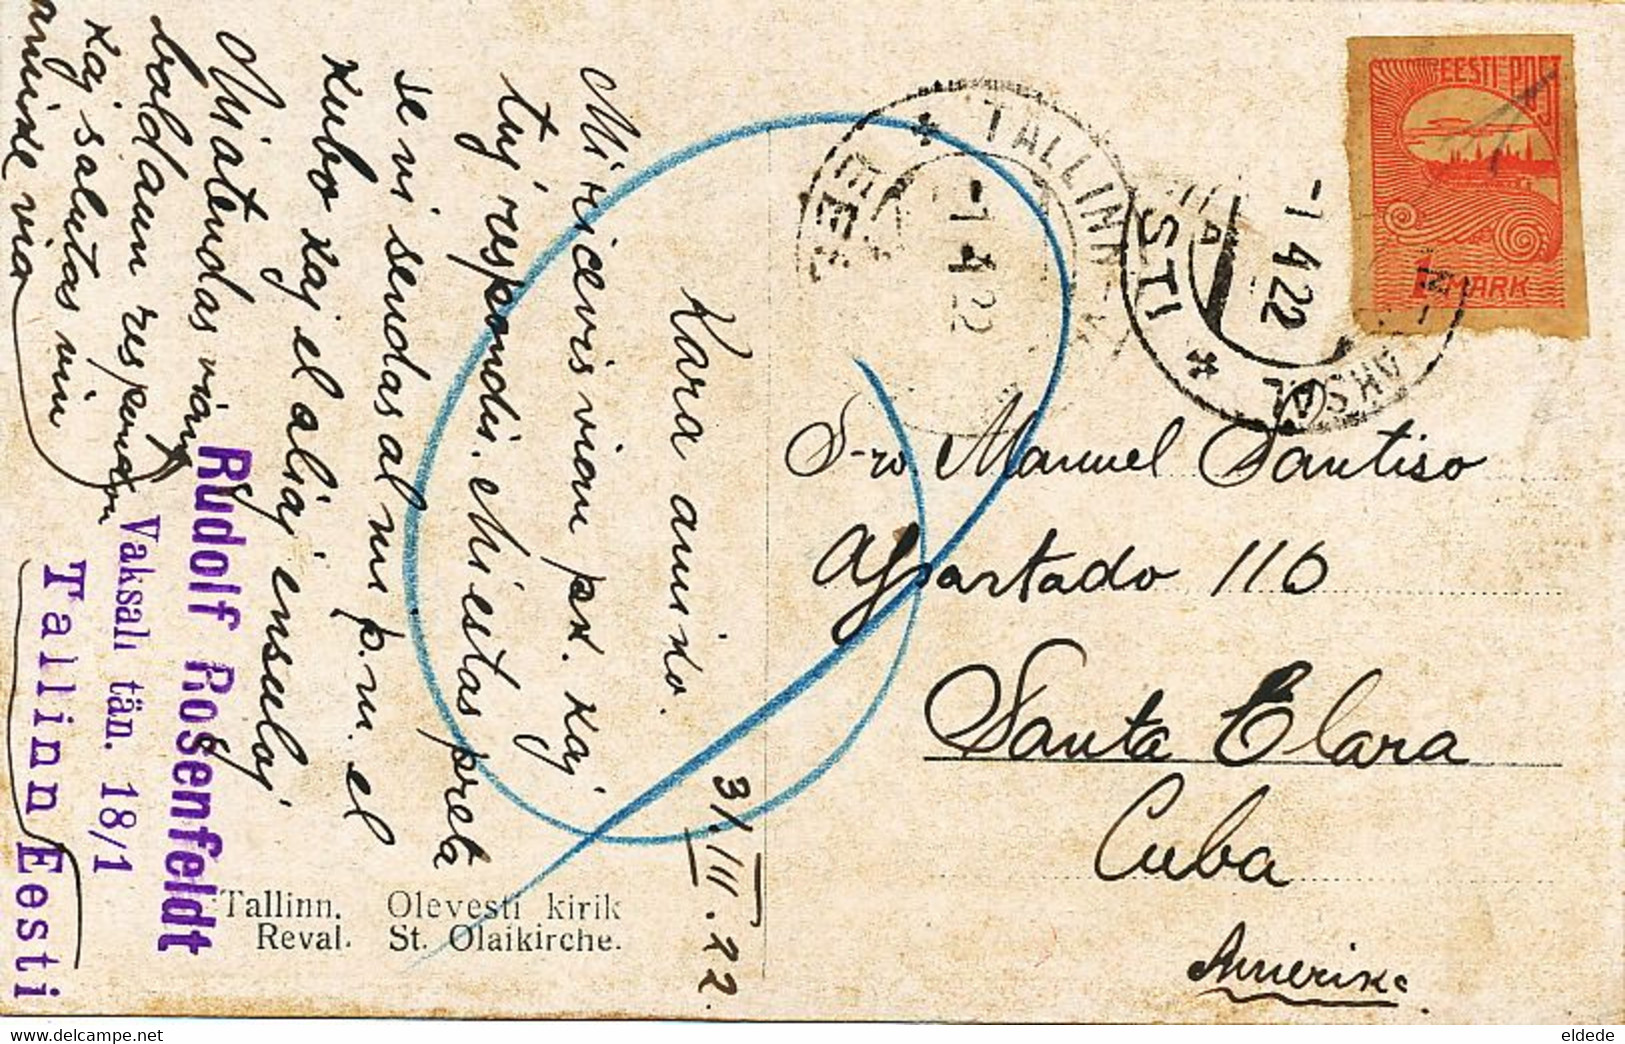 31.III.22.
Kara amiko.
Mi ricevis vian pk. kaj
tuj respondis. Mi estas preta
se vi sendas al mi p.m. el
Kubo kaj el aliaj insuloj
Mi atendas vian
baldaŭ respondon
kaj salutas vin
amike via
Rudolf Rosenfeldt
Vaksali tän. 18/1
Tallinn Eesti
Tallinn. Olevesti kirik
Reval. St. Olaikirche.
EESTI POST
1 MARK
TALLINN-V
EESTI
-1 4 22
-1 4 22
S-ro Manuel Santiso
Apartado 116
Santa Clara
Cuba
Ameriko
eldede